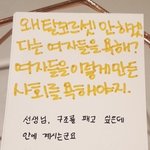 왜 탈코르셋 안 하겠
다는 여자들을 욕해?
여자들을 이렇게 만든
사회를 욕해야지.
선생님, 구조를 패고 싶은데
안에 계시는군요